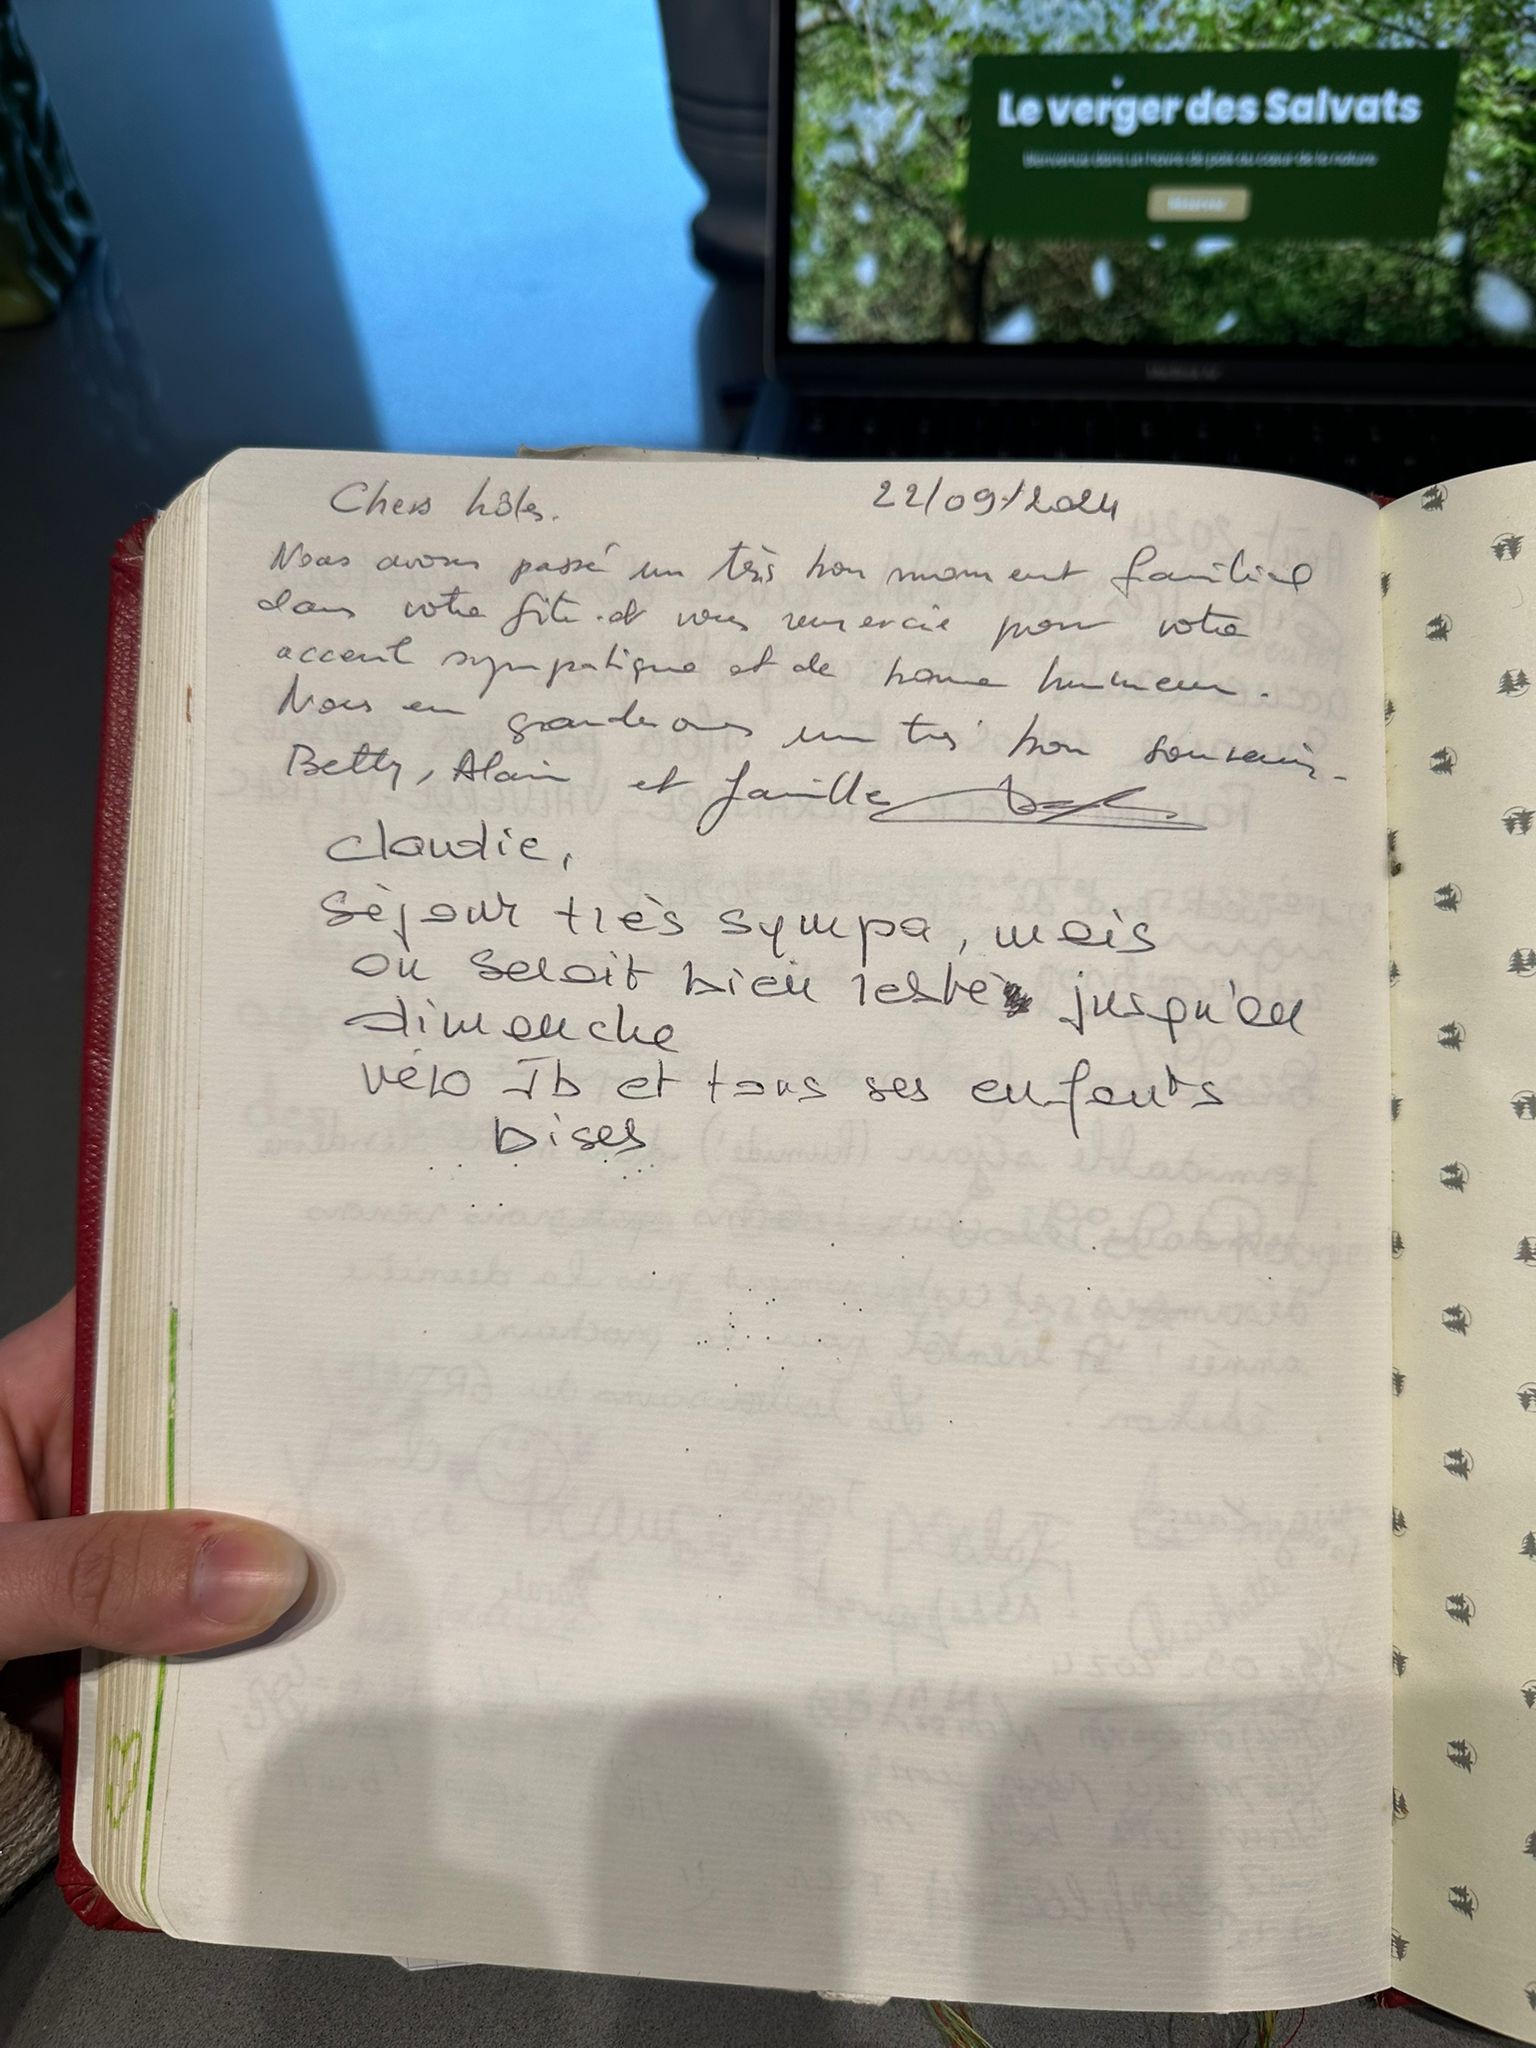 Le verger des Salvats
Bienvenue dans un havre de paix au cœur de la nature
Chers hôtes.
22/09/2024
Nous avons passé un très bon moment familial
dans votre gîte. et vous remercie pour votre
acceuil sympatique et de bonne humeur.
Nous en garderons un très bon souvenir.
Betty, Alain et famille
Claudie,
Séjour très sympa, mais
on serait bien resté jusqu'au
dimanche
Véro Jb et tous ses enfants
bises